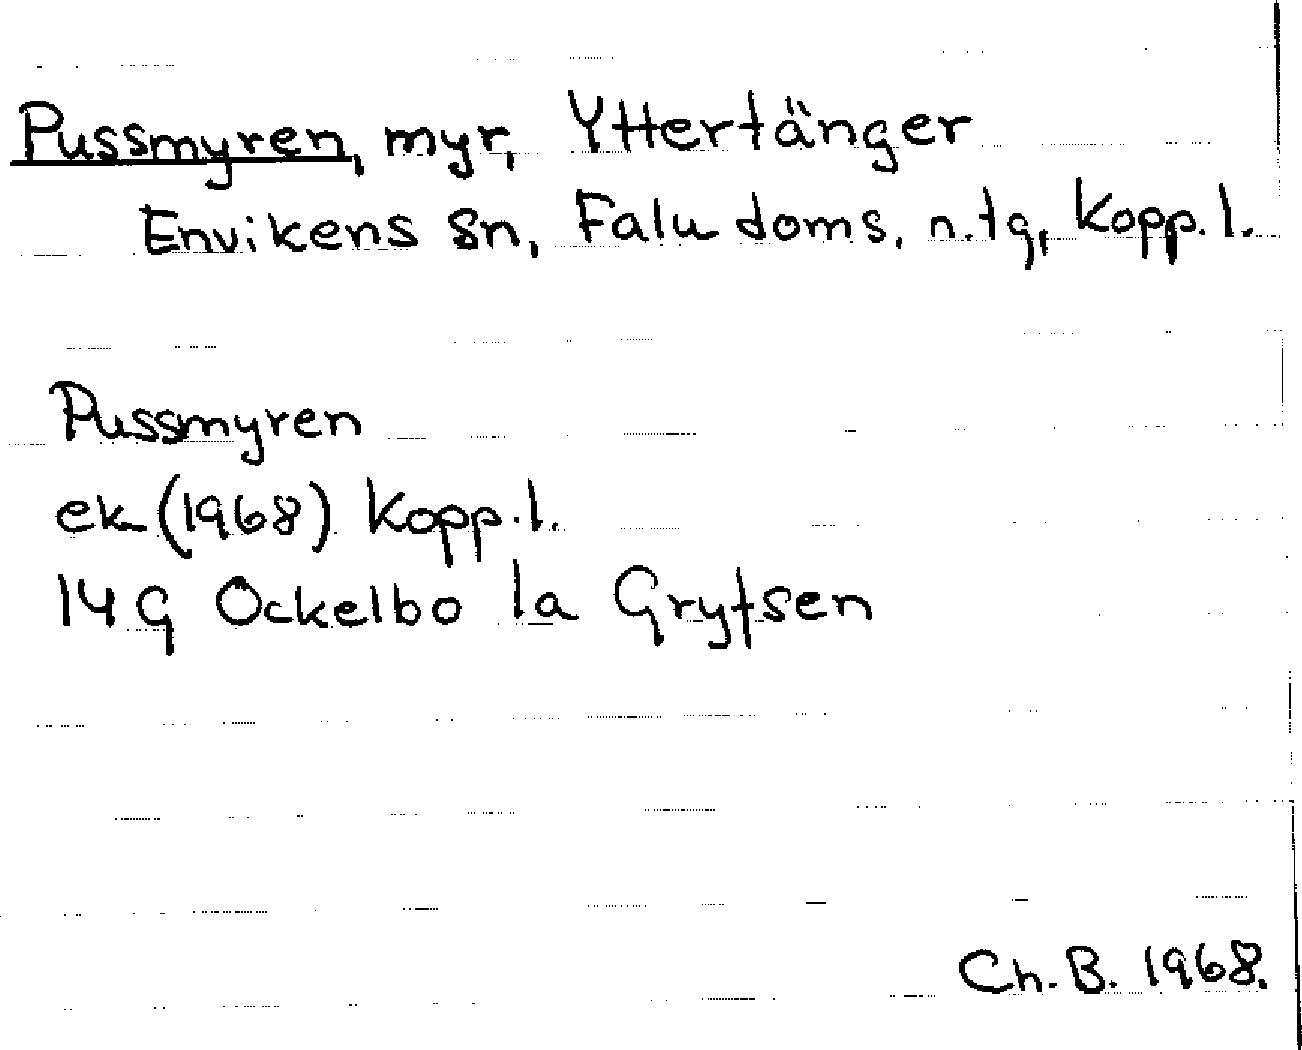 Pussmyren, myr, Yttertänger
Envikens sn, Falu doms. n.tg, Kopp. l.
Pussmyren
ek (1968) Kopp. l.
14 G Ockelbo 1a Grytsen
Ch. B. 1968.